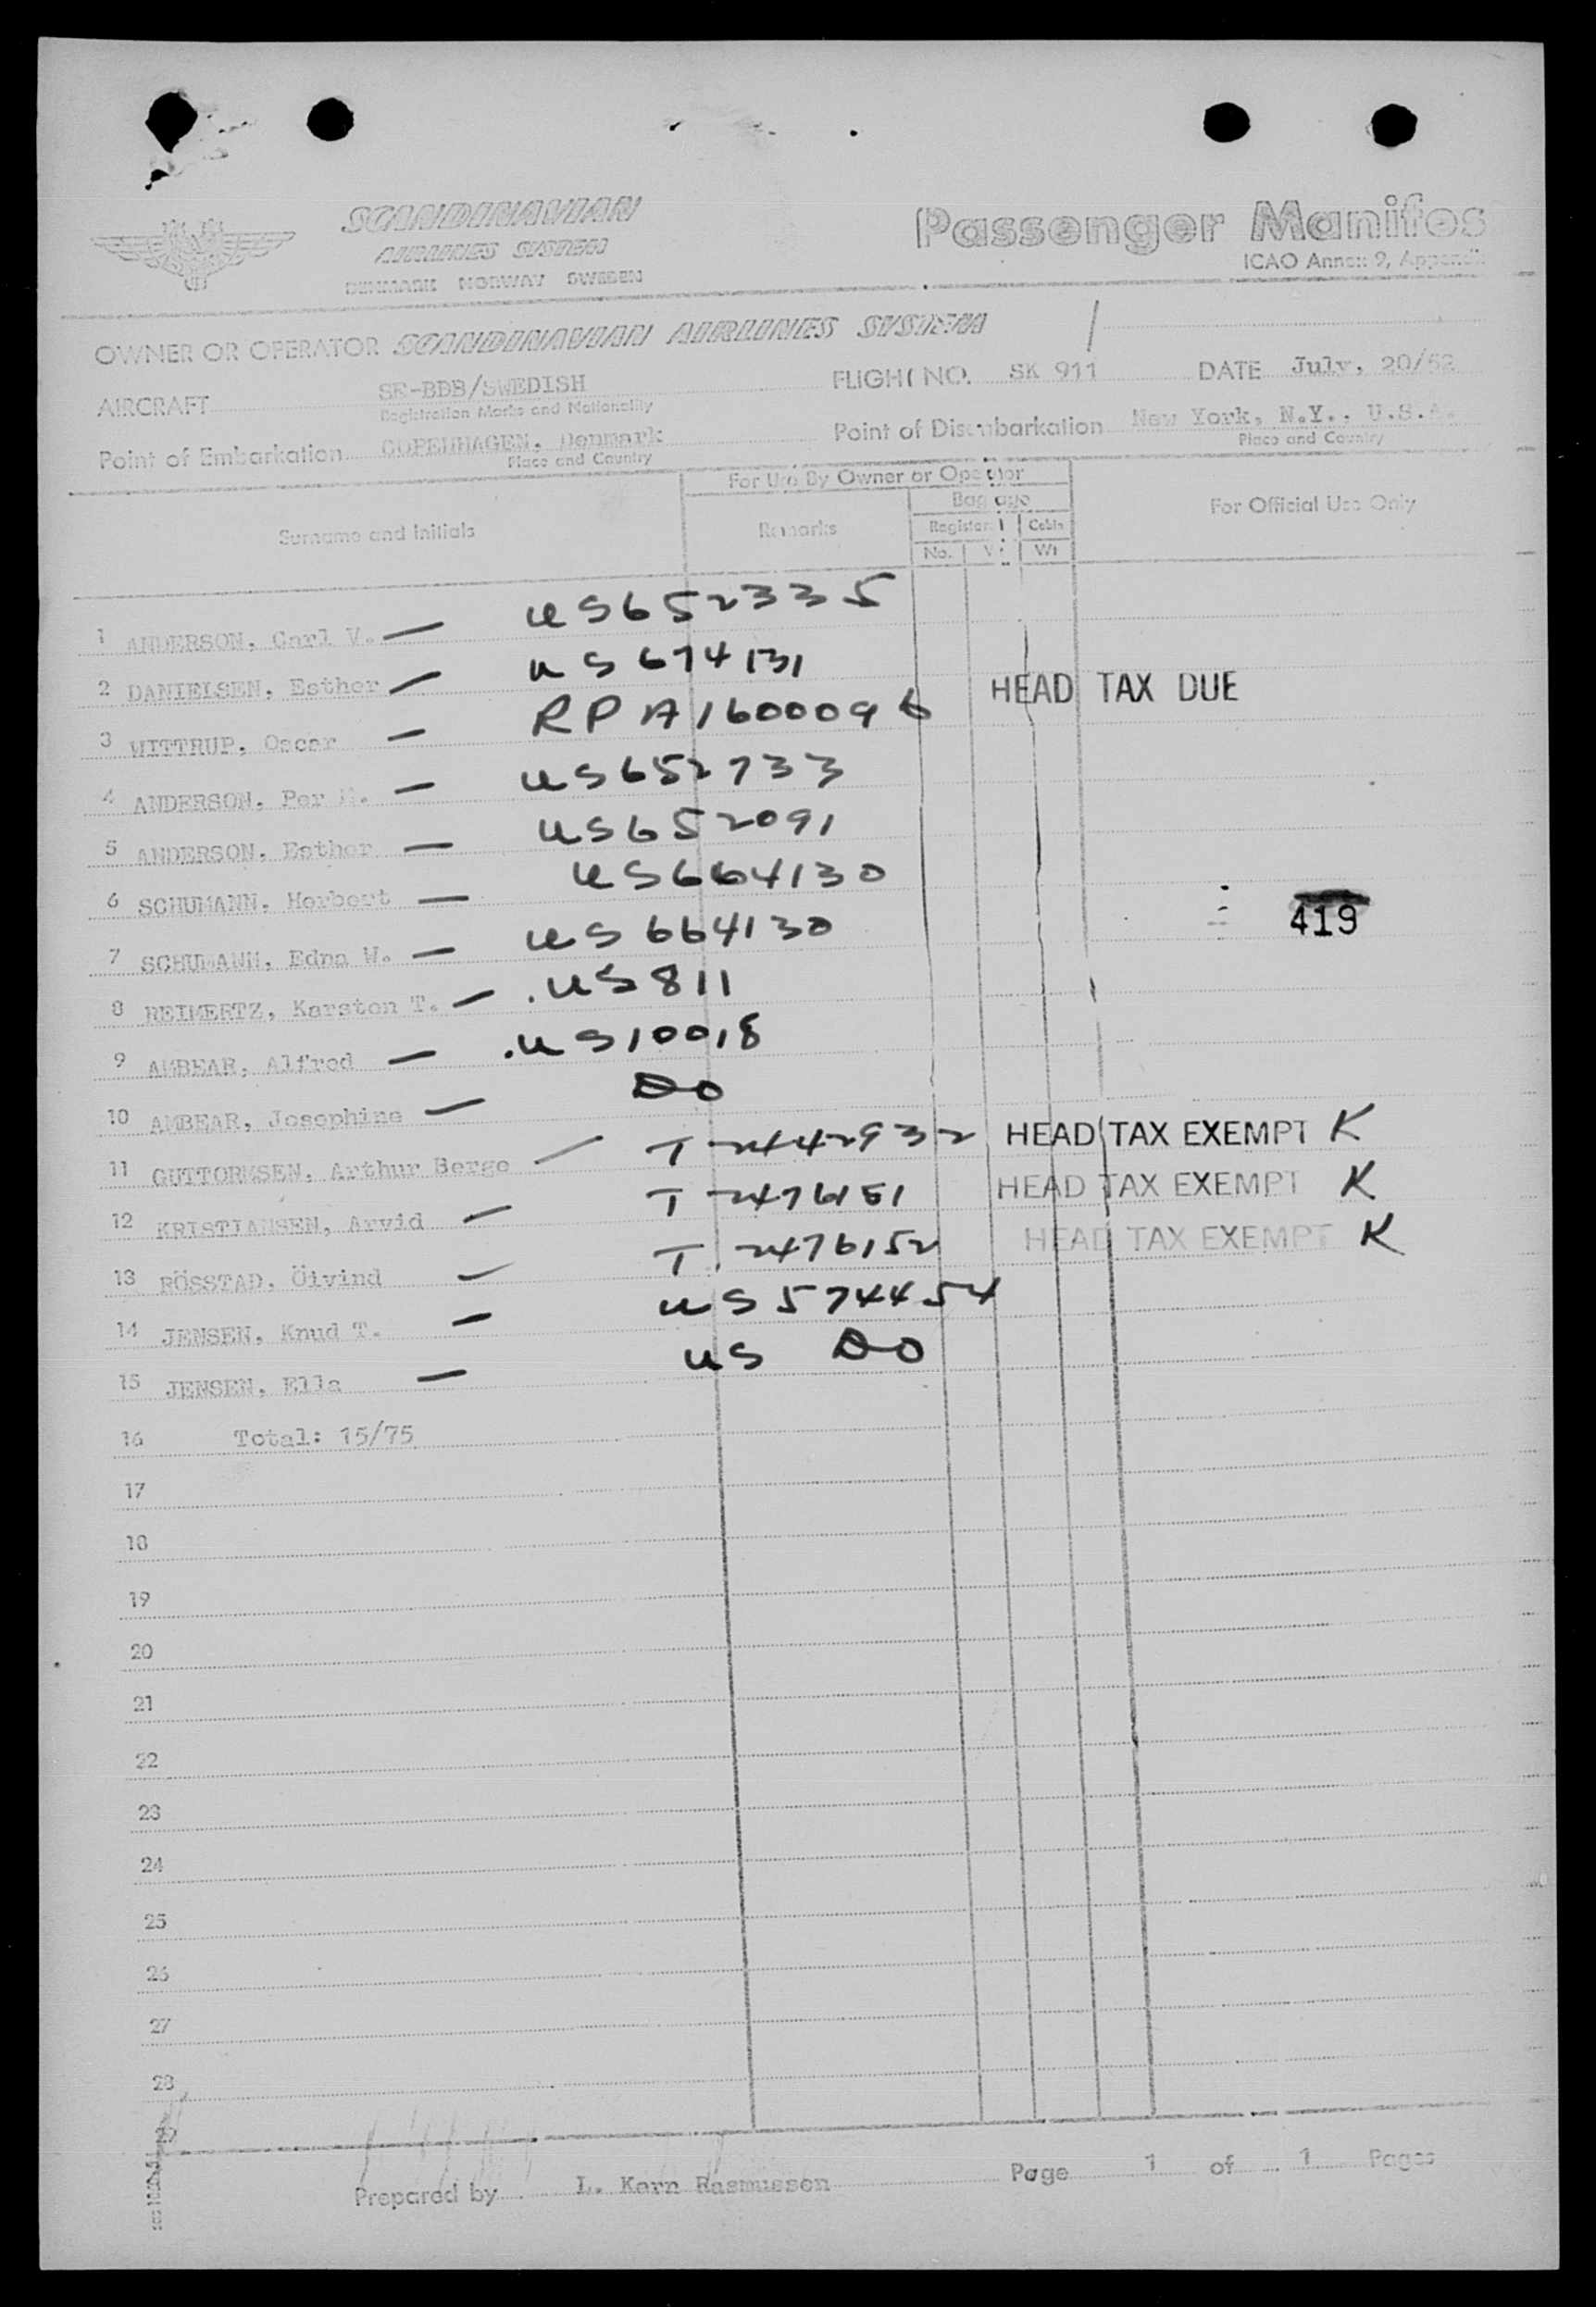 SCANDINAVIAN
AIRLINES SYSTEM
DENMARK NORWAY SWEDEN
Passenger Manifes
ICAO Annex 9, Appendix
OWNER OR OPERATOR SCANDINAVIAN AIRLINES SYSTEM
AIRCRAFT SE-BDB/SWEDISH FLIGHT NO. SK 911 DATE July, 20/52
Registration Marks and Nationality
Point of Embarkation COPENHAGEN, Denmark Point of Disembarkation New York, N.Y., U.S.A.
Place and Country Place and Country
For Use By Owner or Operator
Surname and Initials Remarks Baggage For Official Use Only
Registered Cabin
No. Wt Wt
1 ANDERSON, Carl V. — US652335
2 DANIELSEN, Esther — US 674131 HEAD TAX DUE
3 WITTRUP, Oscar — RP A1600096
4 ANDERSON, Per M. — US652733
5 ANDERSON, Esther — US652091
6 SCHUMANN, Herbert — US664130 419
7 SCHUMANN, Edna W. — US 664130
8 REIMERTZ, Karsten T. — US 811
9 AMBEAR, Alfred — US10018
10 AMBEAR, Josephine — DO
11 GUTTORMSEN, Arthur Berge — T 2442932 HEAD TAX EXEMPT K
12 KRISTIANSEN, Arvid — T 2476151 HEAD TAX EXEMPT K
13 RÖSSTAD, Öivind — T 2476152 HEAD TAX EXEMPT K
14 JENSEN, Knud T. — US 574454
15 JENSEN, Ella — US DO
16 Total: 15/75
17
18
19
20
21
22
23
24
25
26
27
28
29
Prepared by L. Kern Rasmussen Page 1 of 1 Pages